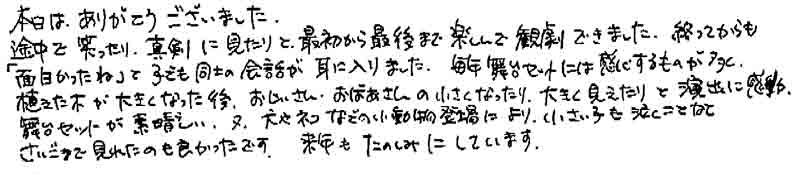 本日は、ありがとうございました。
途中で笑ったり、真剣に見たりと、最初から最後まで楽しんで観劇できました。終ってからも
「面白かったね」と子ども同士の会話が耳に入りました。毎年舞台セットには感心するものが多く、
植えた木が大きくなった後、おじいさん・おばあさんの小さくなったり、大きく見えたりと演出に感動。
舞台セットが素晴しい。又、犬やネコなどの小動物登場により、小さい子も泣くことなく
さいごまで見れたのも良かったです。来年もたのしみにしています。